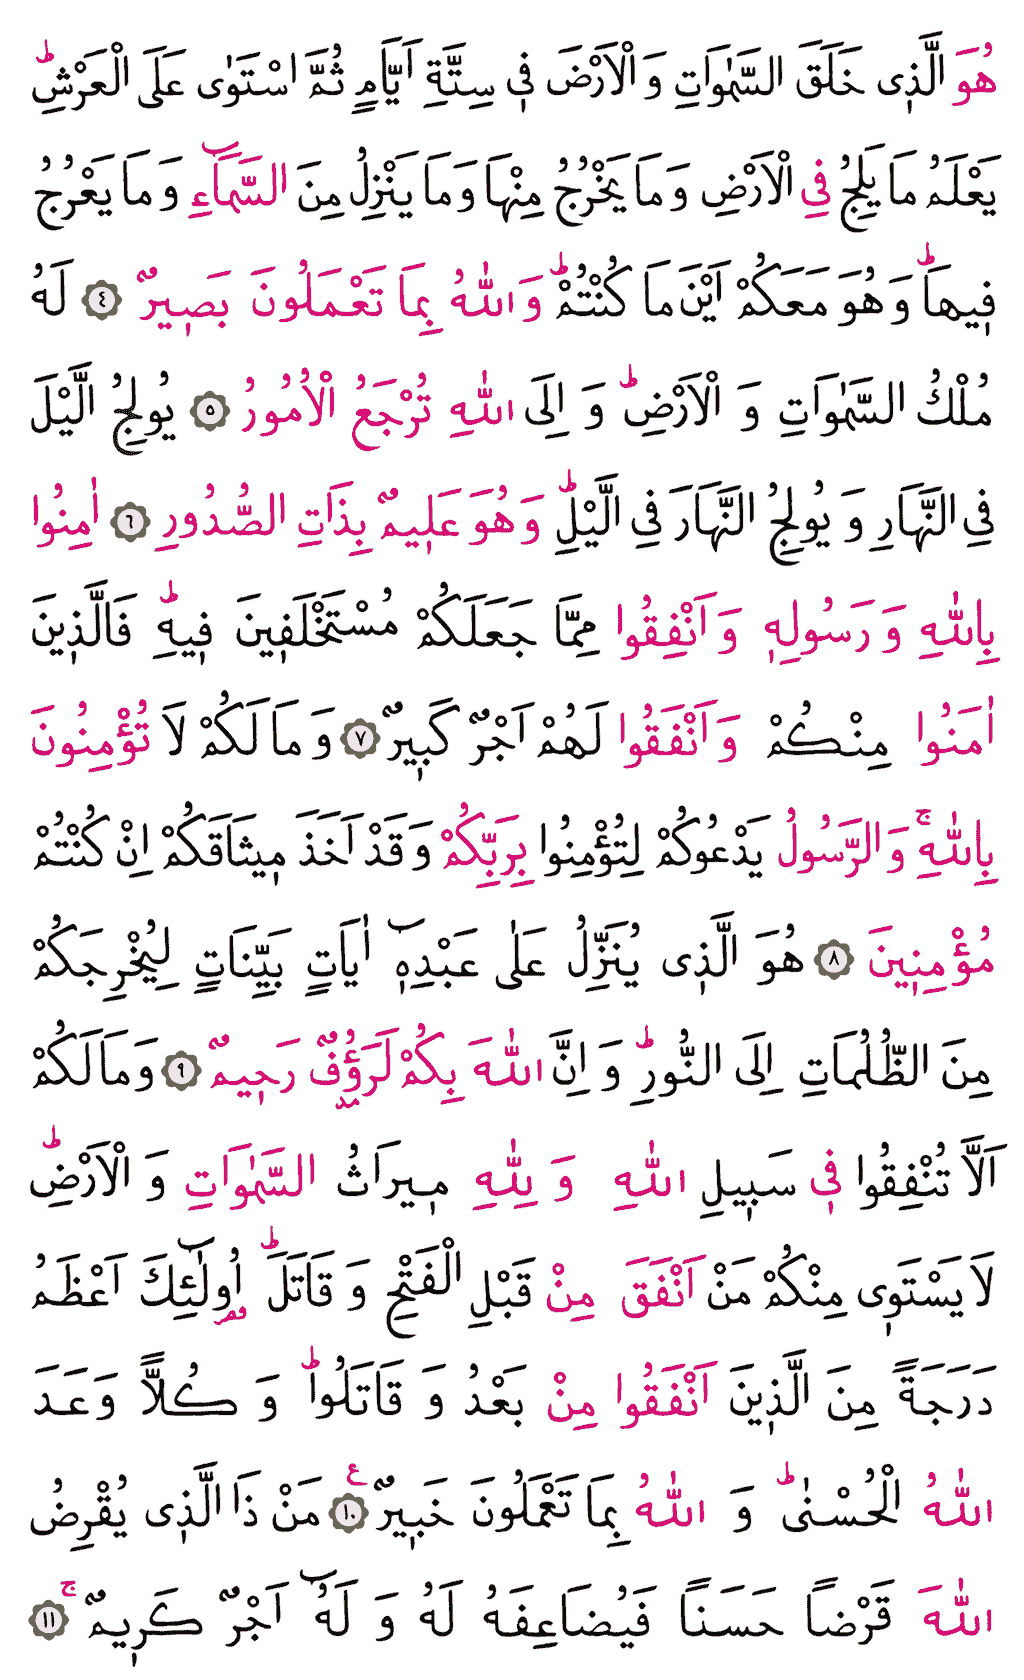 هُوَ الَّذٖى خَلَقَ السَّمٰوَاتِ وَ الْاَرْضَ فٖى سِتَّةِ اَيَّامٍ ثُمَّ اسْتَوٰى عَلَى الْعَرْشِؕ
يَعْلَمُ مَا يَلِجُ فِى الْاَرْضِ وَ مَا يَخْرُجُ مِنْهَا وَ مَا يَنْزِلُ مِنَ السَّمَٓاءِ وَ مَا يَعْرُجُ
فٖيهَاؕ وَ هُوَ مَعَكُمْ اَيْنَ مَا كُنْتُمْؕ وَ اللّٰهُ بِمَا تَعْمَلُونَ بَصٖيرٌ ﴿٤﴾ لَهُ
مُلْكُ السَّمٰوَاتِ وَ الْاَرْضِؕ وَ اِلَى اللّٰهِ تُرْجَعُ الْاُمُورُ ﴿٥﴾ يُولِجُ الَّيْلَ
فِى النَّهَارِ وَ يُولِجُ النَّهَارَ فِى الَّيْلِؕ وَ هُوَ عَلٖيمٌ بِذَاتِ الصُّدُورِ ﴿٦﴾ اٰمِنُوا
بِاللّٰهِ وَ رَسُولِهٖ وَ اَنْفِقُوا مِمَّا جَعَلَكُمْ مُسْتَخْلَفٖينَ فٖيهِؕ فَالَّذٖينَ
اٰمَنُوا مِنْكُمْ وَ اَنْفَقُوا لَهُمْ اَجْرٌ كَبٖيرٌ ﴿٧﴾ وَ مَا لَكُمْ لَا تُؤْمِنُونَ
بِاللّٰهِۚ وَ الرَّسُولُ يَدْعُوكُمْ لِتُؤْمِنُوا بِرَبِّكُمْ وَ قَدْ اَخَذَ مٖيثَاقَكُمْ اِنْ كُنْتُمْ
مُؤْمِنٖينَ ﴿٨﴾ هُوَ الَّذٖى يُنَزِّلُ عَلٰى عَبْدِهٖٓ اٰيَاتٍ بَيِّنَاتٍ لِيُخْرِجَكُمْ
مِنَ الظُّلُمَاتِ اِلَى النُّورِؕ وَ اِنَّ اللّٰهَ بِكُمْ لَرَؤُفٌ رَحٖيمٌ ﴿٩﴾ وَ مَا لَكُمْ
اَلَّا تُنْفِقُوا فٖى سَبٖيلِ اللّٰهِ وَ لِلّٰهِ مٖيرَاثُ السَّمٰوَاتِ وَ الْاَرْضِؕ
لَا يَسْتَوٖى مِنْكُمْ مَنْ اَنْفَقَ مِنْ قَبْلِ الْفَتْحِ وَ قَاتَلَؕ اُولٰٓئِكَ اَعْظَمُ
دَرَجَةً مِنَ الَّذٖينَ اَنْفَقُوا مِنْ بَعْدُ وَ قَاتَلُواؕ وَ كُلًّا وَعَدَ
اللّٰهُ الْحُسْنٰىؕ وَ اللّٰهُ بِمَا تَعْمَلُونَ خَبٖيرٌ ﴿١٠﴾ ع مَنْ ذَا الَّذٖى يُقْرِضُ
اللّٰهَ قَرْضًا حَسَنًا فَيُضَاعِفَهُ لَهُ وَ لَهُٓ اَجْرٌ كَرٖيمٌۚ ﴿١١﴾